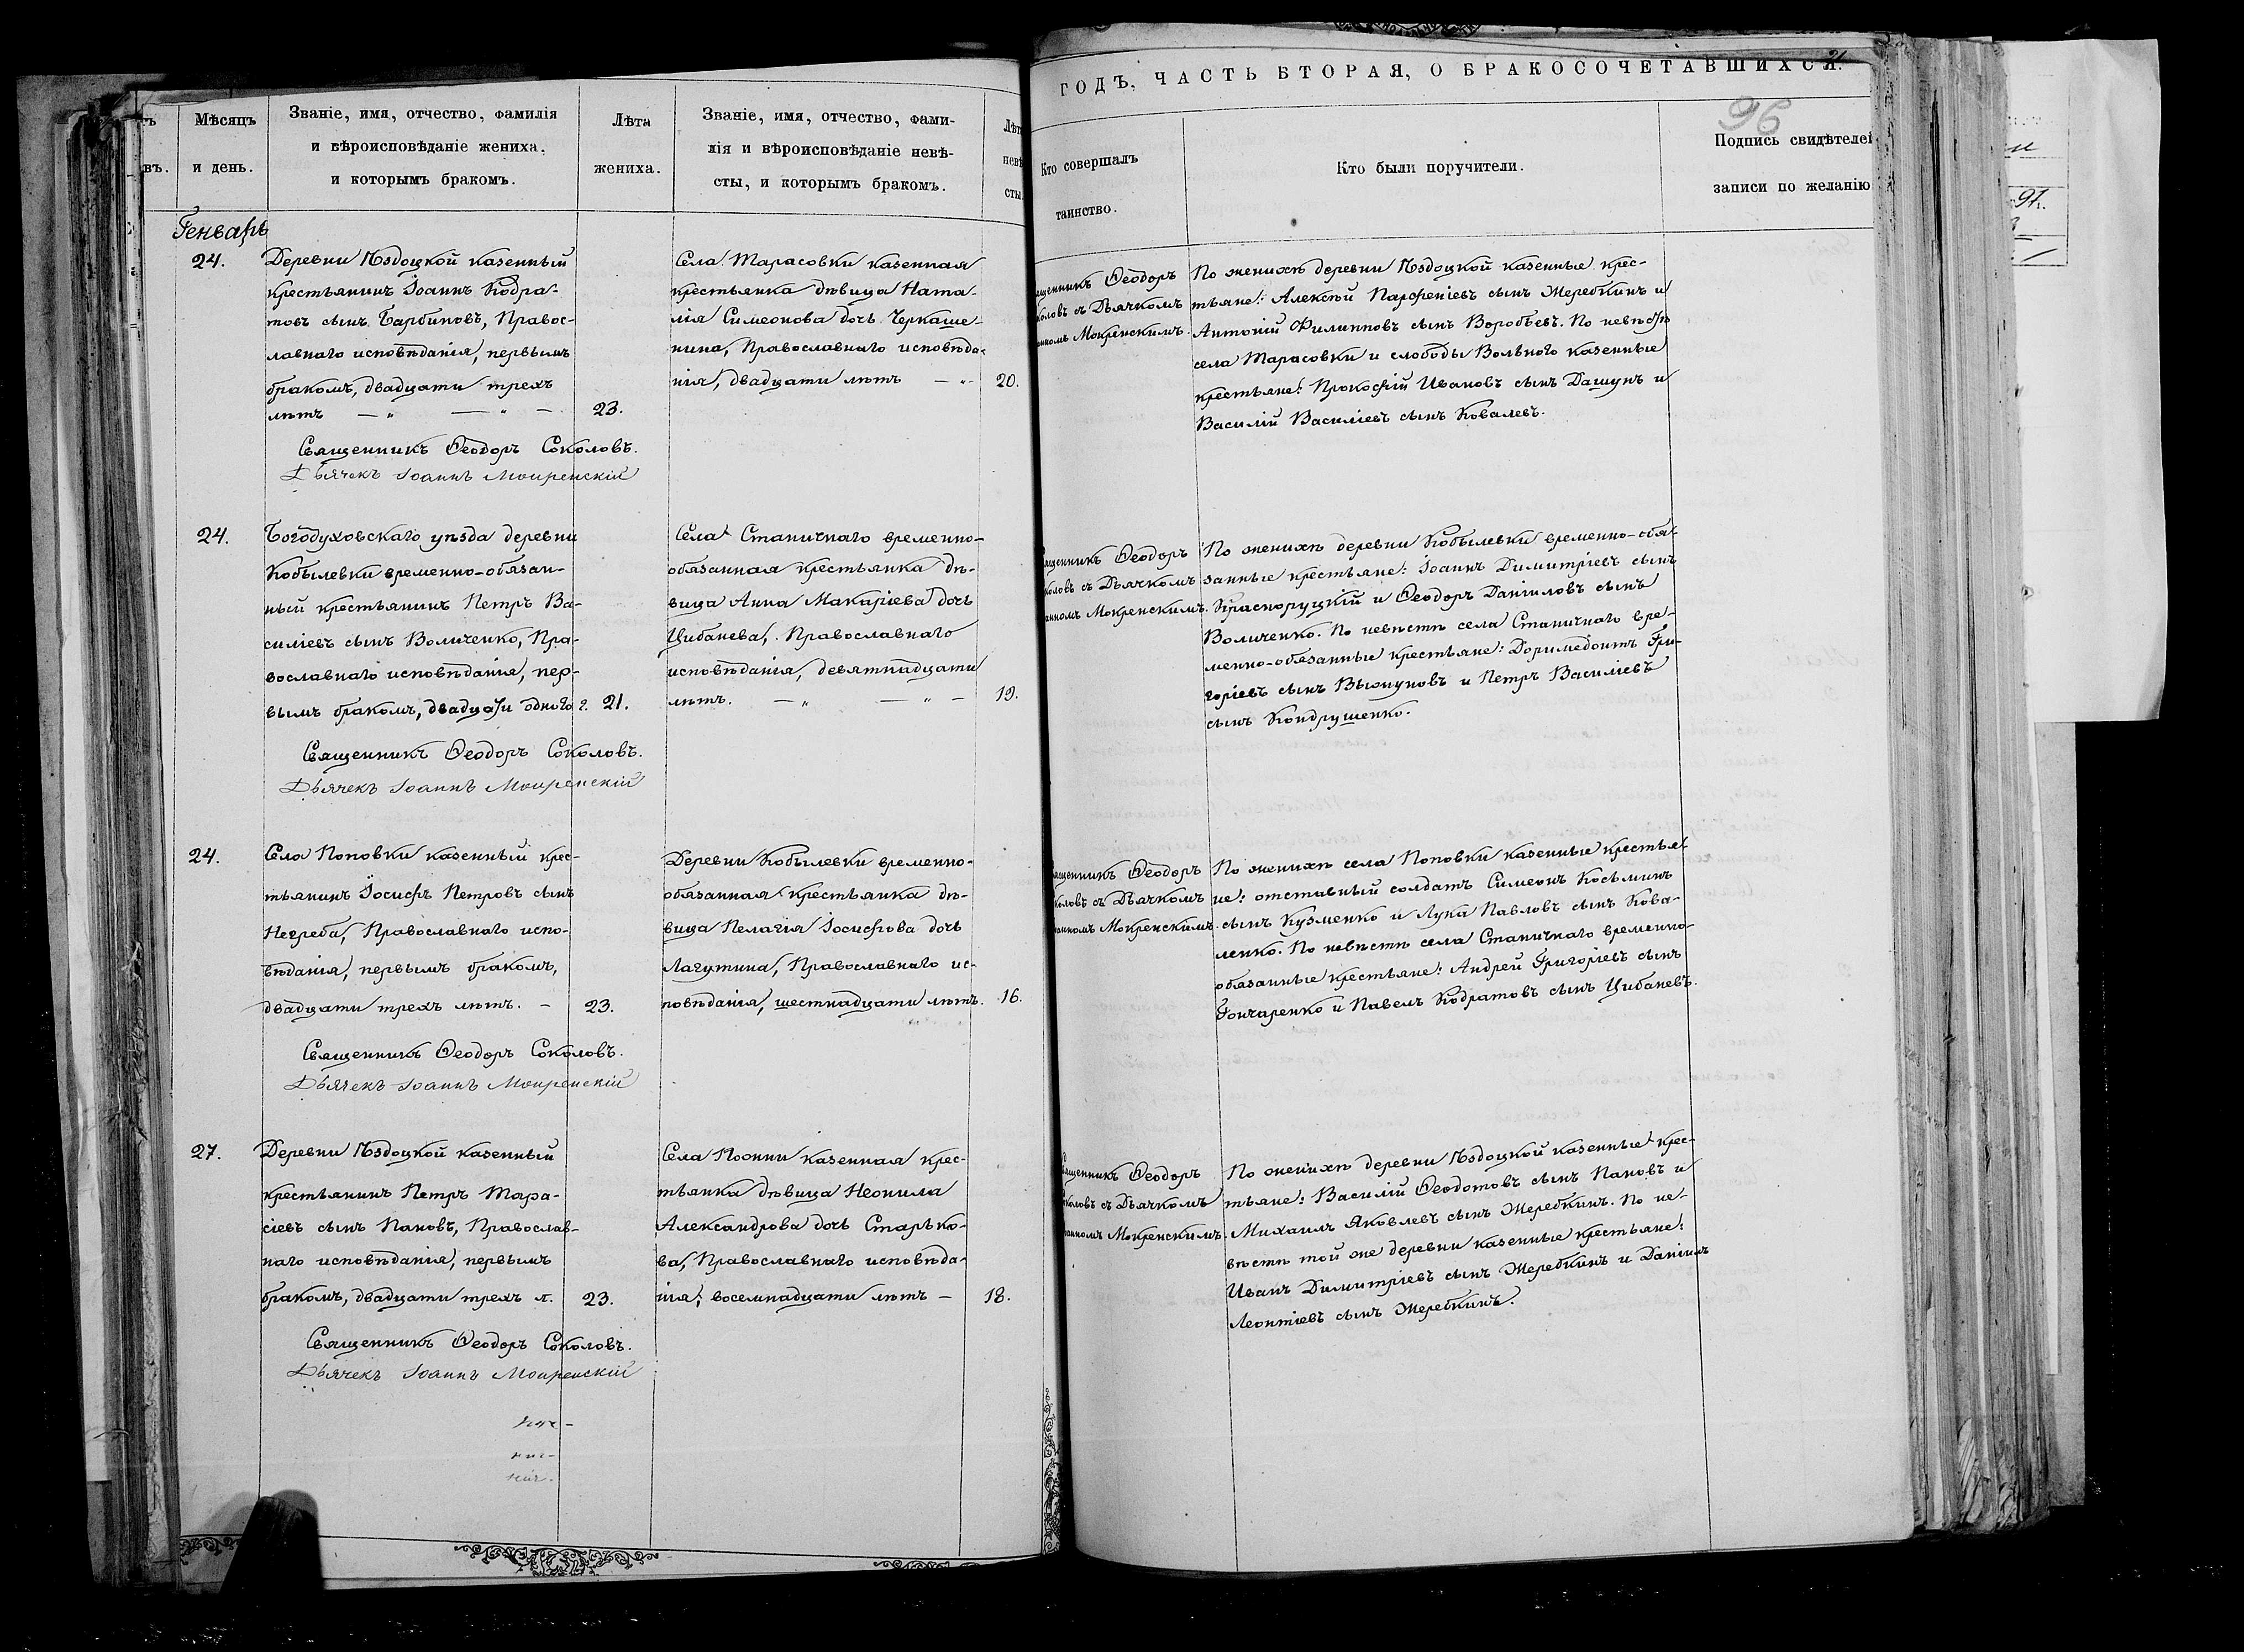 ГОДЪ, ЧАСТЬ ВТОРАЯ, О БРАКОСОЧЕТАВШИХСЯ.
96
въ.
Мѣсяцъ
и день.
Званіе, имя, отчество, фамилія
и вѣроисповѣданіе жениха,
и которымъ бракомъ.
Лѣта
жениха.
Званіе, имя, отчество, фами-
лія и вѣроисповѣданіе невѣ-
сты, и которымъ бракомъ.
Лѣт
невѣ
сты.
Кто совершалъ
таинство.
Кто были поручители.
Подпись свидѣтелей
записи по желанію
Генварь
24.
Деревни Ѣздоцкой казенный
крестьянинъ Іоаннъ Кодра-
товъ сынъ Барбиновъ, Правос-
лавнаго исповѣданія, первымъ
бракомъ, двадцати трехъ
лѣтъ — „ — „ —
23.
Священникъ Ѳеодоръ Соколовъ.
Дьячекъ Іоаннъ Мокренскій
Села Тарасовки казенная
крестьянка дѣвица Ната-
лія Симеонова дочь Черкаше-
нина, Православнаго исповѣда-
нія, двадцати лѣтъ — „
20.
ященникъ Ѳеодоръ
коловъ съ Дьячкомъ
анномъ Мокренскимъ.
По женихѣ деревни Ѣздоцкой казенные крес-
тьяне: Алексѣй Парѳеніевъ сынъ Жеребкинъ и
Антоній Филипповъ сынъ Воробьевъ. По невѣстѣ
села Тарасовки и слободы Вольного казенные
крестьяне: Прокофій Ивановъ сынъ Дашунъ и
Василій Василіевъ сынъ Ковалевъ.
24.
Богодуховскаго уѣзда деревни
Кобылевки временно-обязан-
ный крестьянинъ Петръ Ва-
силіевъ сынъ Воличенко, Пра-
вославнаго исповѣданія, пер-
вымъ бракомъ, двадцати одного г.
21.
Священникъ Ѳеодоръ Соколовъ.
Дьячекъ Іоаннъ Мокренскій
Села Станичнаго временно-
обязанная крестьянка дѣ-
вица Анна Макаріева дочь
Цибанева, Православнаго
исповѣданія, девятнадцати
лѣтъ. — „ — „ —
19.
ященникъ Ѳеодоръ
коловъ съ Дьячкомъ
анномъ Мокренскимъ.
По женихѣ деревни Кобылевки временно-обя-
занные крестьяне: Іоаннъ Димитріевъ сынъ
Краснорутскій и Ѳеодоръ Даніиловъ сынъ
Воличенко. По невѣстѣ села Станичнаго вре-
менно-обязанные крестьяне: Доримедонтъ Гри-
горіевъ сынъ Вьюнуновъ и Петръ Василіевъ
сынъ Кондрушенко.
24.
Села Поповки казенный крес-
тьянинъ Іосифъ Петровъ сынъ
Негреба, Православнаго испо-
вѣданія, первымъ бракомъ,
двадцати трехъ лѣтъ. —
23.
Священникъ Ѳеодоръ Соколовъ.
Дьячекъ Іоаннъ Мокренскій
Деревни Кобылевки временно-
обязанная крестьянка дѣ-
вица Пелагія Іосифова дочь
Лагутина, Православнаго ис-
повѣданія, шестнадцати лѣтъ.
16.
ященникъ Ѳеодоръ
коловъ съ Дьячкомъ
анномъ Мокренскимъ.
По женихѣ села Поповки казенные крестья-
не: отставный солдатъ Симеонъ Косьминъ
сынъ Кузменко и Лука Павловъ сынъ Кова-
ленко. По невѣстѣ села Станичнаго временно-
обязанные крестьяне: Андрей Григоріевъ сынъ
Гончаренко и Павелъ Кодратовъ сынъ Цибаневъ.
27.
Деревни Ѣздоцкой казенный
крестьянинъ Петръ Тара-
сіевъ сынъ Пановъ, Православ-
наго исповѣданія, первымъ
бракомъ, двадцати трехъ л.
23.
Священникъ Ѳеодоръ Соколовъ.
Дьячекъ Іоаннъ Мокренскій
Села Поонни казенная крес-
тьянка дѣвица Неонила
Александрова дочь Старько-
ва, Православнаго исповѣда-
нія, восемнадцати лѣтъ —
18.
ященникъ Ѳеодоръ
коловъ съ Дьячкомъ
анномъ Мокренскимъ.
По женихѣ деревни Ѣздоцкой казенные крес-
тьяне: Василій Ѳеодотовъ сынъ Пановъ и
Михаилъ Яковлевъ сынъ Жеребкинъ. По не-
вѣстѣ той же деревни казенные крестьяне:
Иванъ Димитріевъ сынъ Жеребкинъ и Даніилъ
Леонтіевъ сынъ Жеребкинъ.